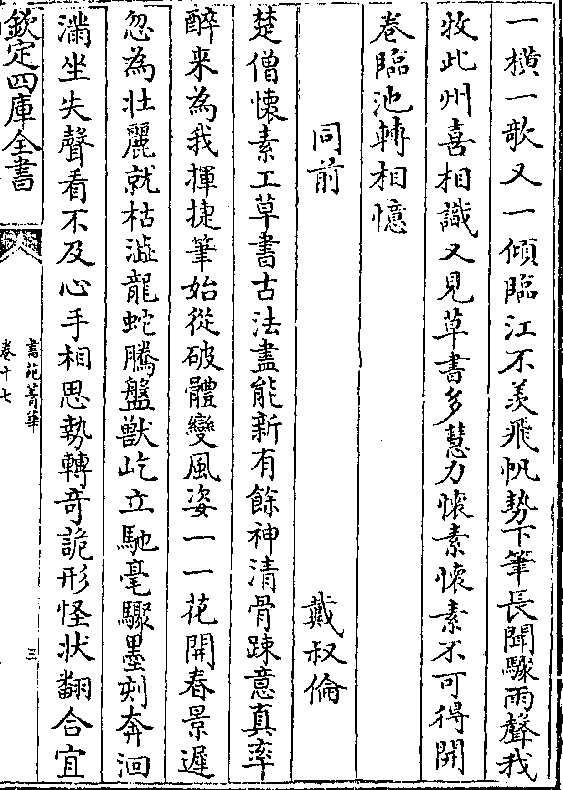 一橫一歌又一傾臨江不羨飛帆勢下筆長聞驟雨聲我
牧此州喜相識又見草書多慧力懷素懷素不可得開
卷臨池轉相憶
同前
戴叔倫
楚僧懷素工草書古法盡能新有餘神清骨踈意真率
醉来為我揮捷筆始從破體變風姿一一花開春景遲
忽為壮麗就枯澁龍蛇騰盤獸屹立馳毫驟墨刻奔泗
滿坐失聲看不及心手相思勢轉奇詭形怪状翻合宜
欽定四庫全書
書苑菁華
卷十七
三